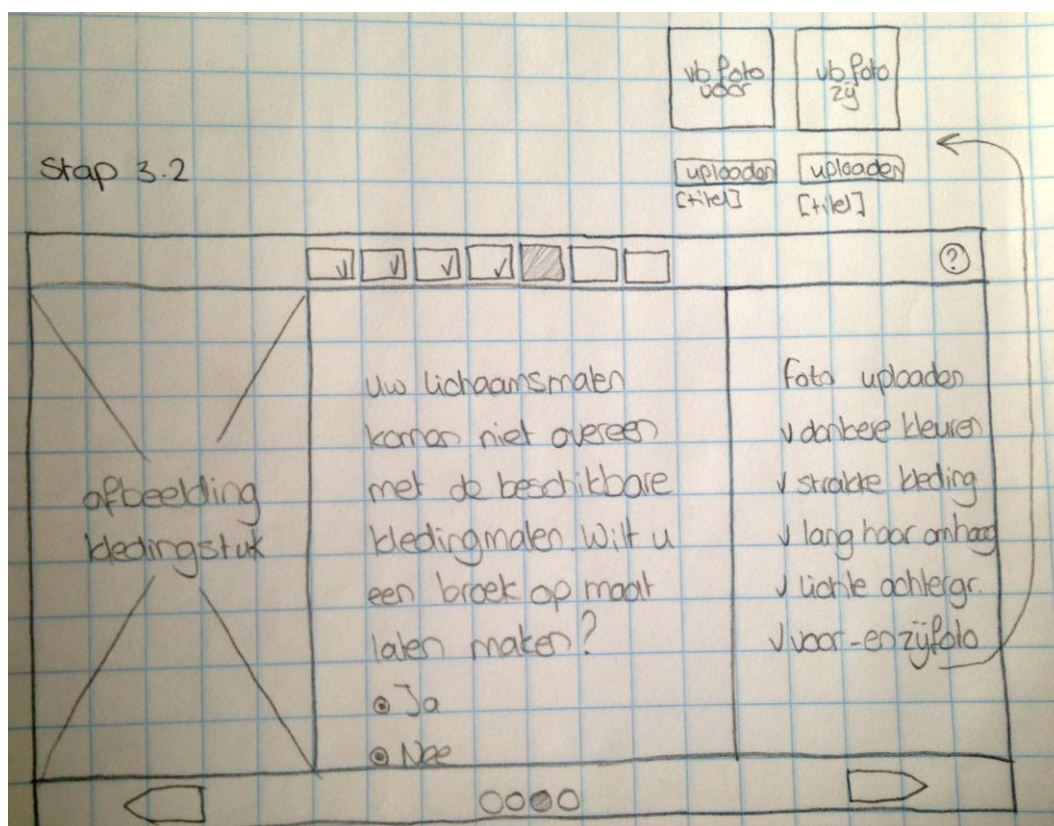 vb foto
voor
vb foto
zij
Stap 3.2
uploaden
uploaden
[titel]
[titel]
?
afbeelding
kledingstuk
Uw lichaamsmaten
komen niet overeen
met de beschikbare
kledingmaten. Wilt u
een broek op maat
laten maken?
Ja
Nee
foto uploaden
v donkere kleuren
v strakke kleding
v lang haar omhoog
v lichte achtergr.
v voor-en zijfoto